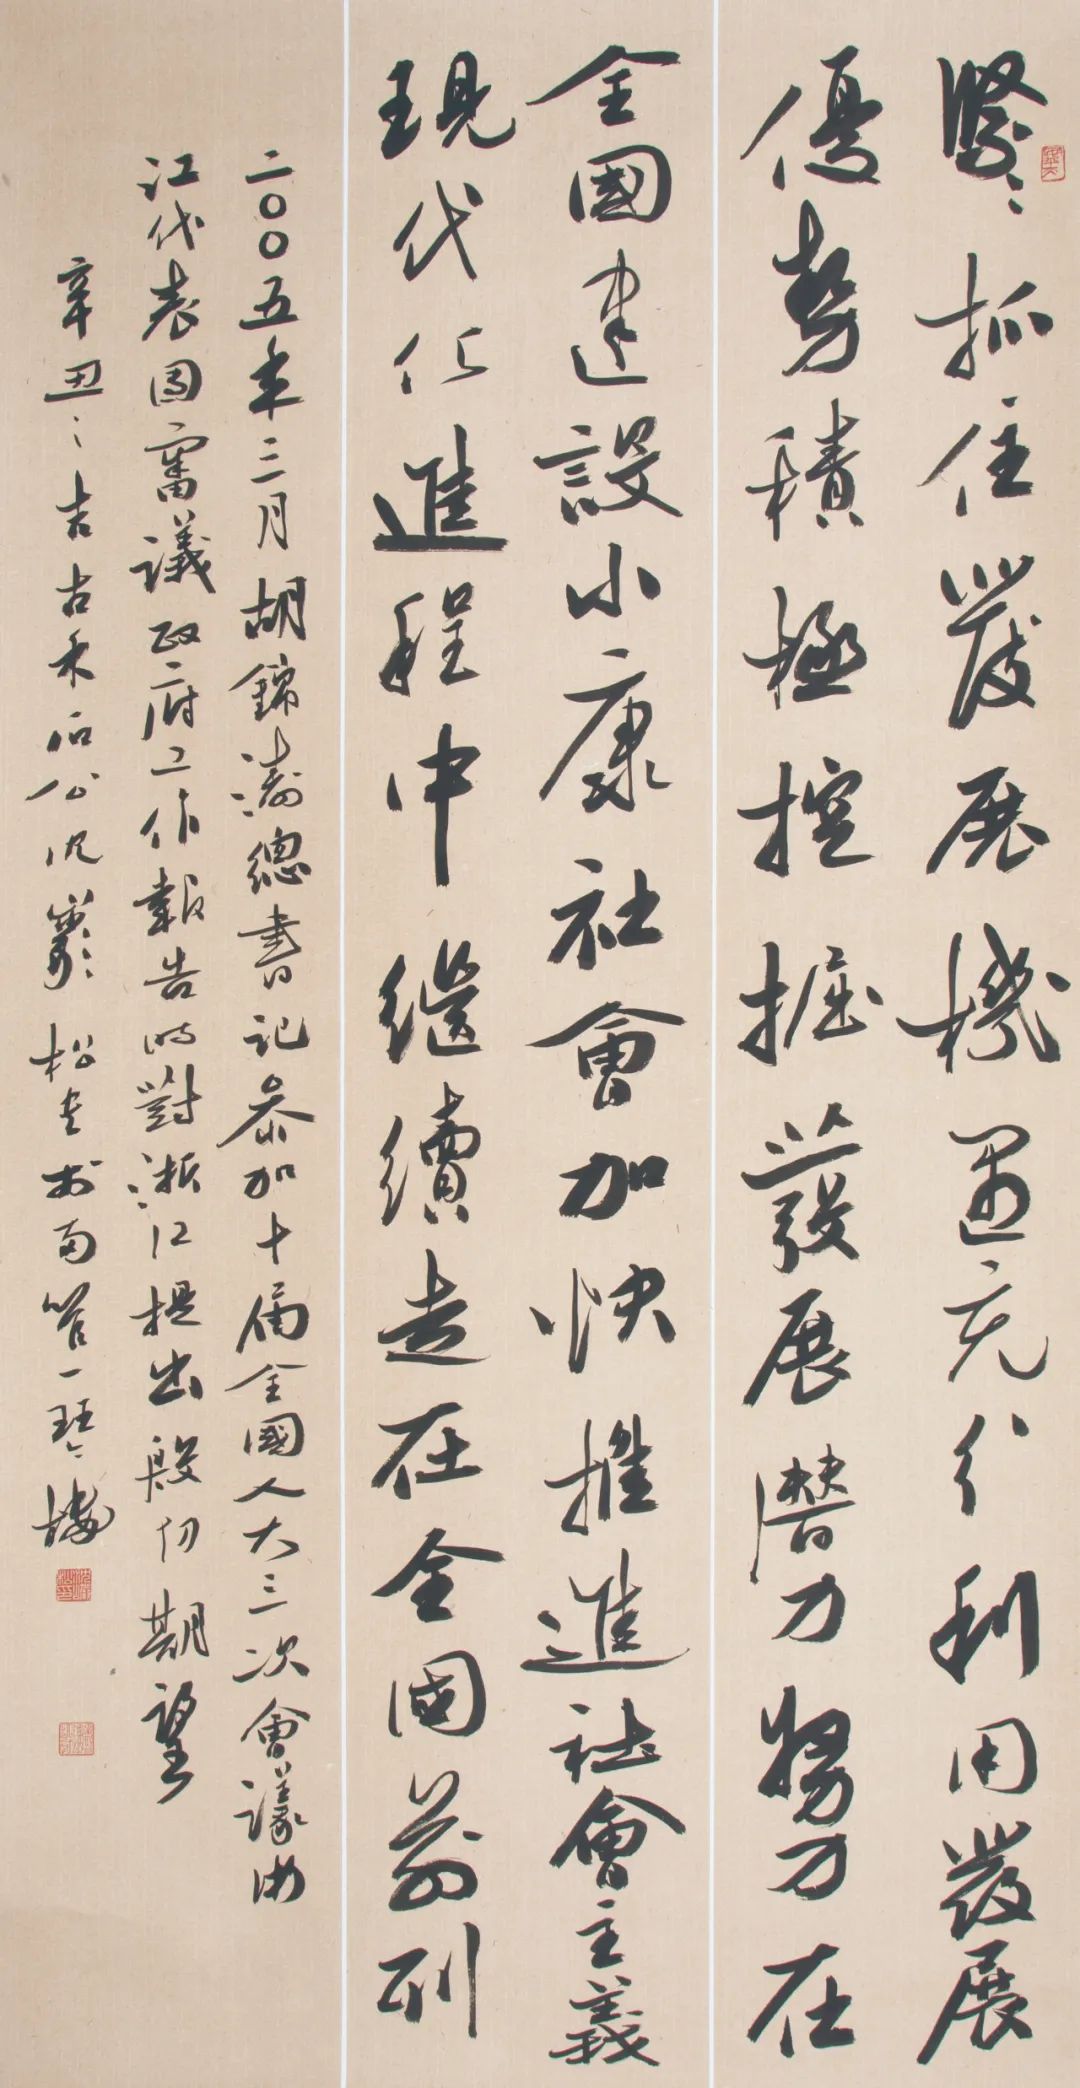 緊緊抓住發展機遇充分利用發展
優勢積極挖掘發展潛力努力在
全國建設小康社會加快推進社會主義
現代化進程中繼續走在全國前列
二〇〇五年三月胡錦濤總書記參加十屆全國人大三次會議浙
江代表團審議政府工作報告時對浙江提出殷切期望
辛丑之吉古禾石公沈巖松年於南管一琴樓